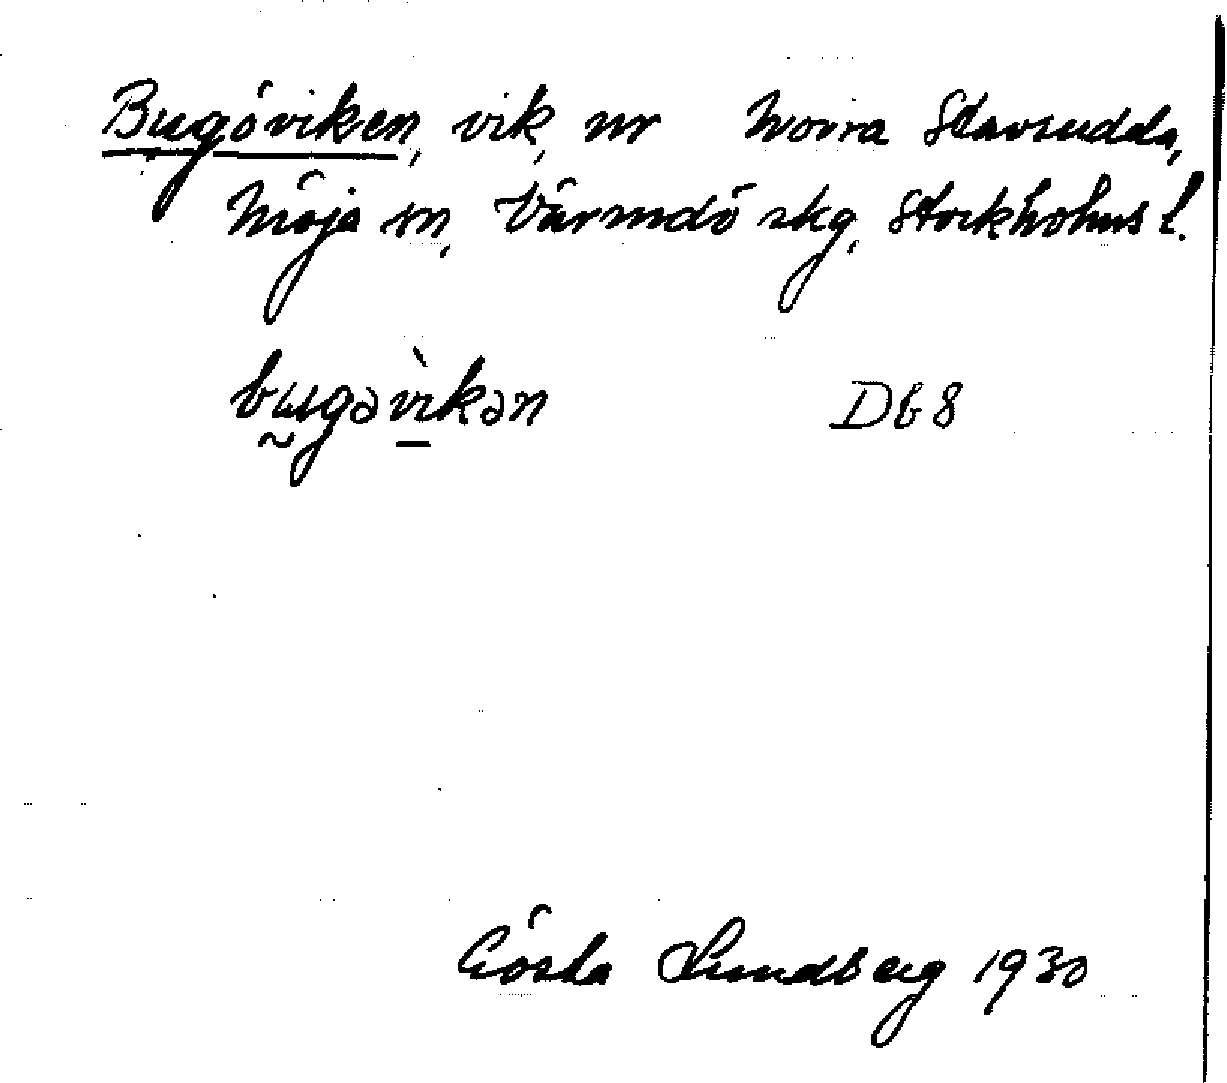 Bugöviken, vik, nr Norra Stavsudda,
Möja sn, Värmdö skg, Stockholms l.
bugəvìkən Db 8
Gösta Lundberg 1930